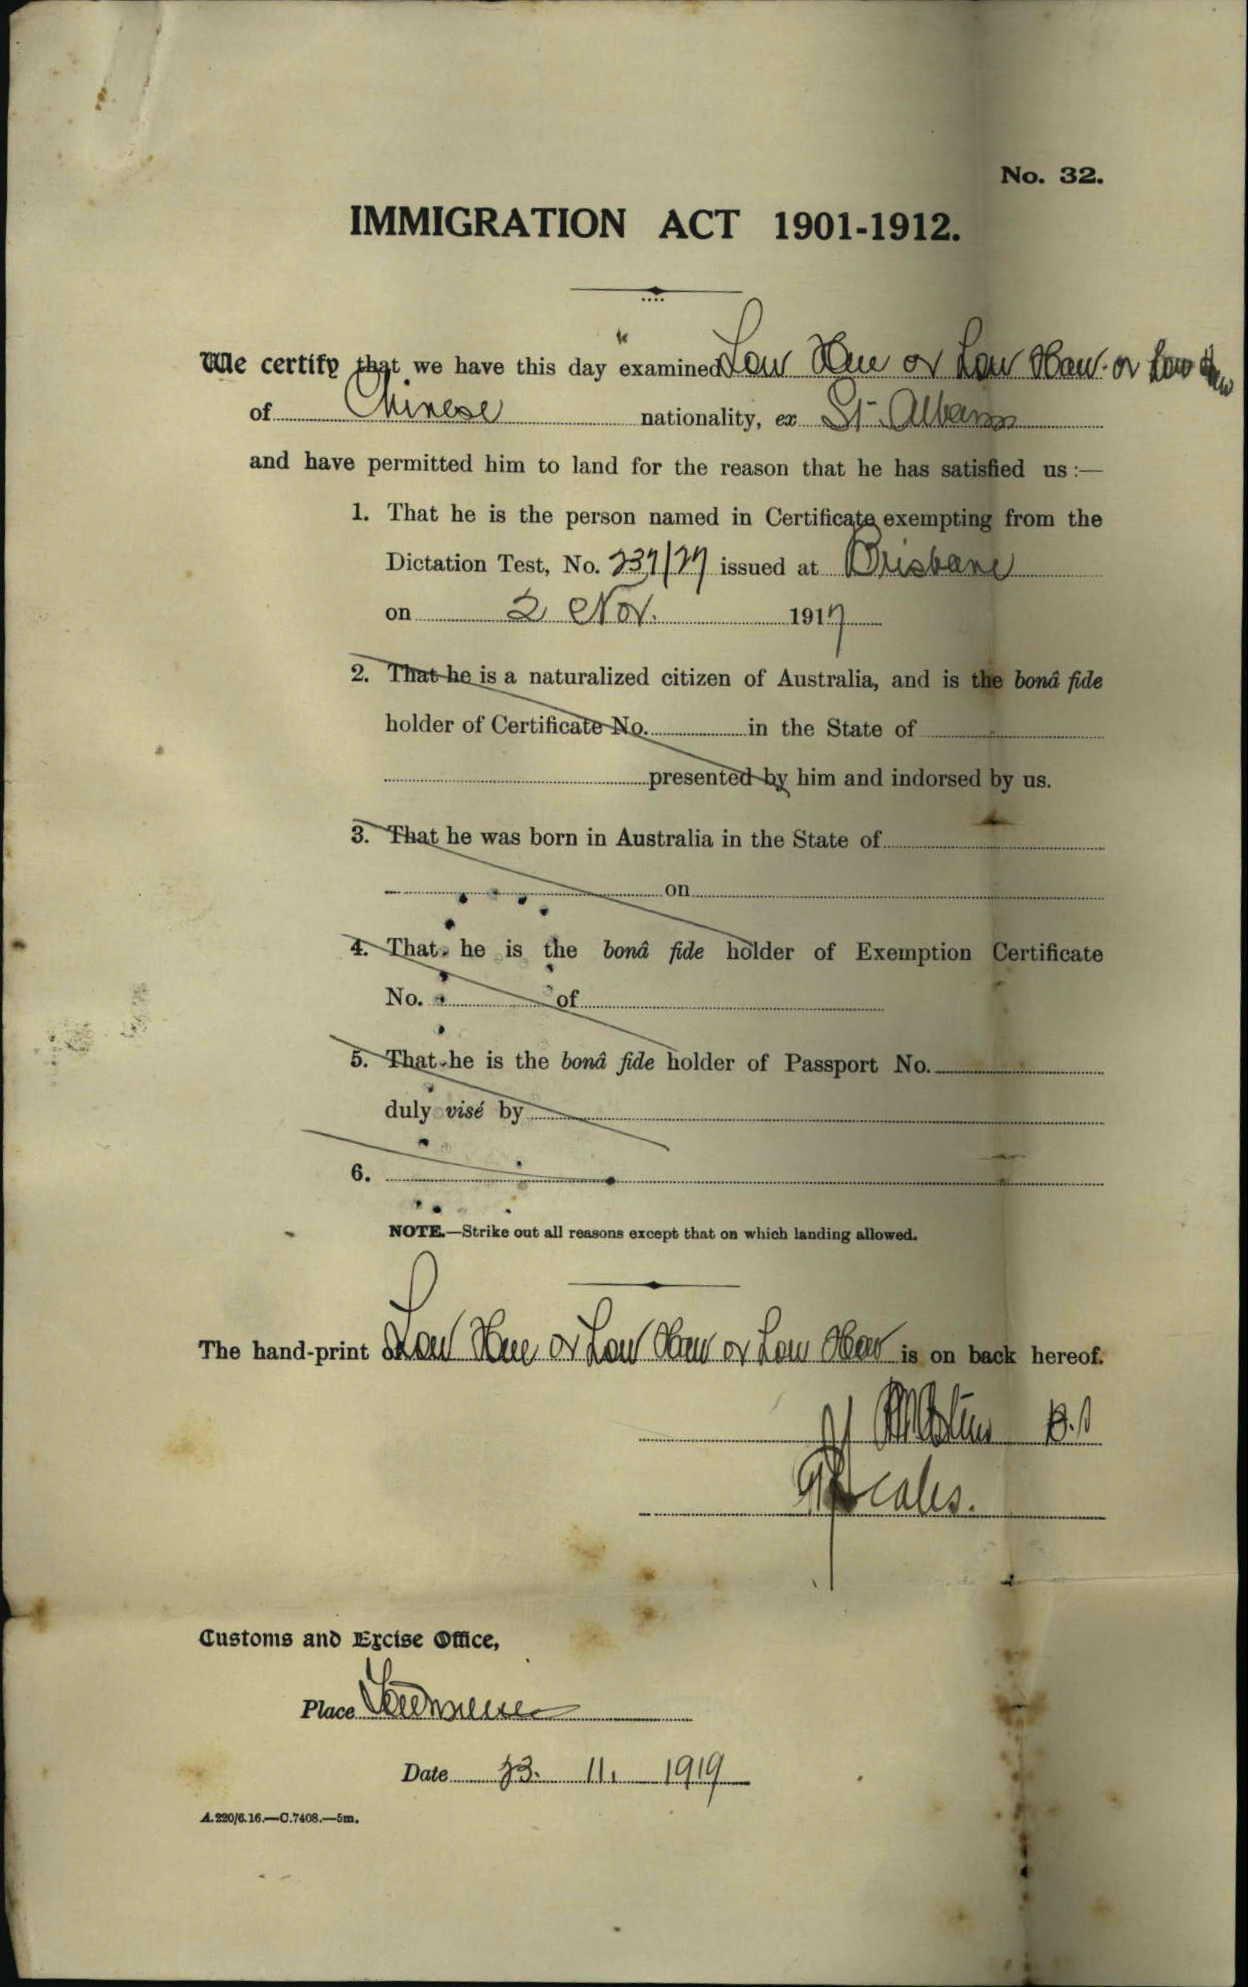 No. 32.
IMMIGRATION ACT 1901-1912.
We certify that we have this day examined Low Hue or Low Haw or Low
of Chinese nationality, ex St. Albans
and have permitted him to land for the reason that he has satisfied us :—
1. That he is the person named in Certificate exempting from the
Dictation Test, No. 237/27 issued at Brisbane
on 2 Nov. 1917
2. That he is a naturalized citizen of Australia, and is the bonâ fide
holder of Certificate No. in the State of
presented by him and indorsed by us.
3. That he was born in Australia in the State of
on
4. That he is the bonâ fide holder of Exemption Certificate
No. of
5. That he is the bonâ fide holder of Passport No.
duly visé by
6.
NOTE.—Strike out all reasons except that on which landing allowed.
The hand-print of Low Hue or Low Haw or Low is on back hereof.
Customs and Excise Office,
Place
Date 23. 11. 1919
A.220/6.16.—C.7408.—5m.